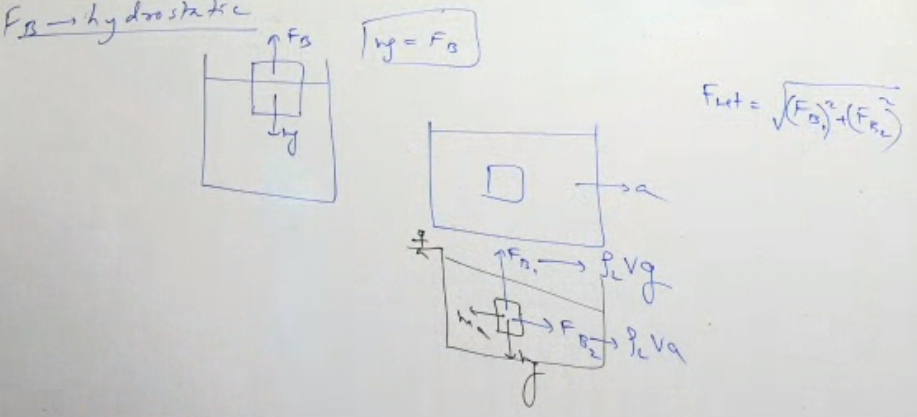 F_B → hydrostatic
F_B
mg = F_B
mg
F_net = √(F_B₁)² + (F_B₂)²
→ a
F_B₁ → ρ_L V g
ma
F_B₂ → ρ_L V a
mg